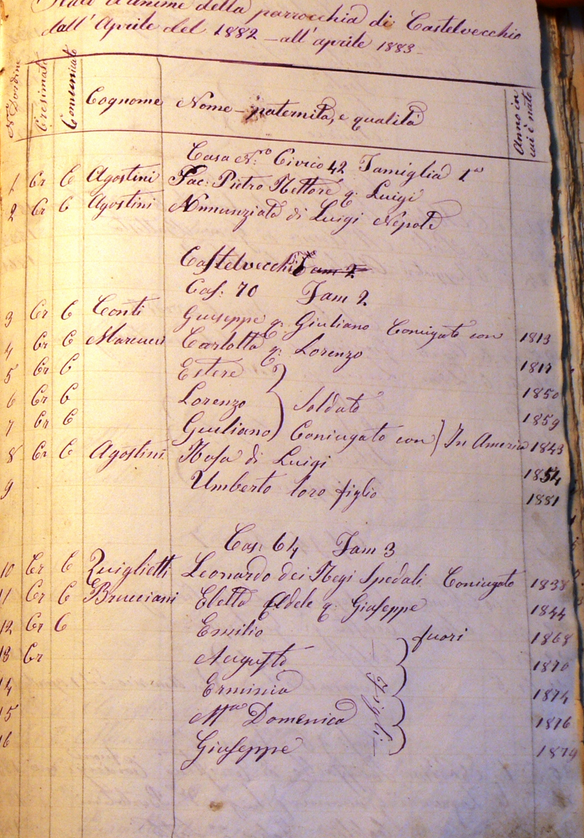 Stato d'anime della parrocchia di Castelvecchio
dall'Aprile del 1882 - all'aprile 1883-
N. d'ordine Cresimati Comunicati Cognome Nome - paternità, e qualità Anno in cui è nato
Casa N.o Civico 42 Famiglia 1a
1 Cr C Agostini Sac: Pietro Ettore q. Luigi
2 Cr C Agostini Annunziata di Luigi Nepote
Castelvecchio Fam 2
Cas: 70 Fam 2.
3 Cr C Conti Giuseppe q. Giuliano Coniugato con 1813
4 Cr C Marcucci Carlotta q. Lorenzo 1817
5 Cr C Estere 1850
6 Cr C Lorenzo Soldato 1859
7 Cr C Giuliano Coniugato con In America 1843
8 Cr C Agostini Rosa di Luigi 1854
9 Umberto loro figlio 1881
Cas: 64 Fam 3
10 Cr C Quiglietti Leonardo dei Regi Spedali Coniugato 1838
11 Cr C Brucciani q. Giuseppe 1844
12 Cr C Emilio fuori 1868
13 Cr Augusto 1870
14 Erminia 1874
15 Ma Domenica 1876
16 Giuseppe 1879
figli